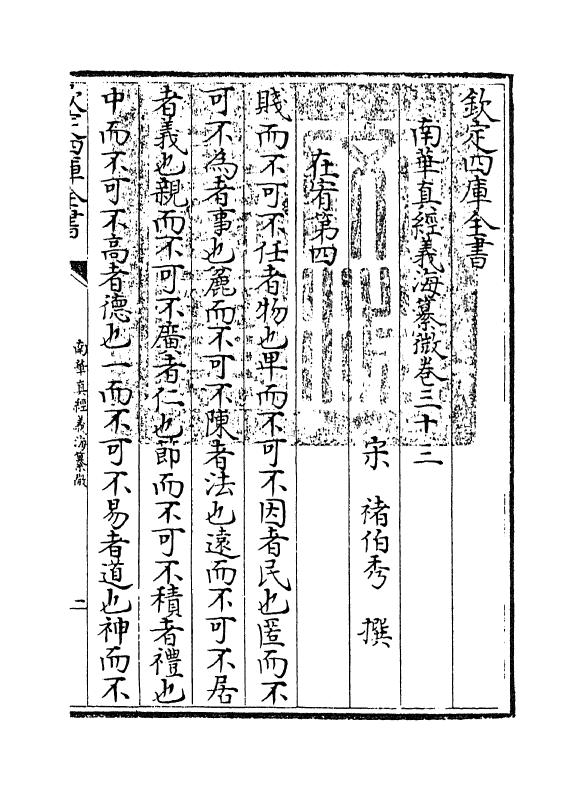 欽定四庫全書
南華真經義海纂微卷三十三
宋 褚伯秀 撰
在宥第四
賤而不可不任者物也卑而不可不因者民也匿而不
可不為者事也麤而不可不陳者法也遠而不可不居
者義也親而不可不廣者仁也節而不可不積者禮也
中而不可不高者德也一而不可不易者道也神而不
欽定四庫全書
南華真經義海纂微